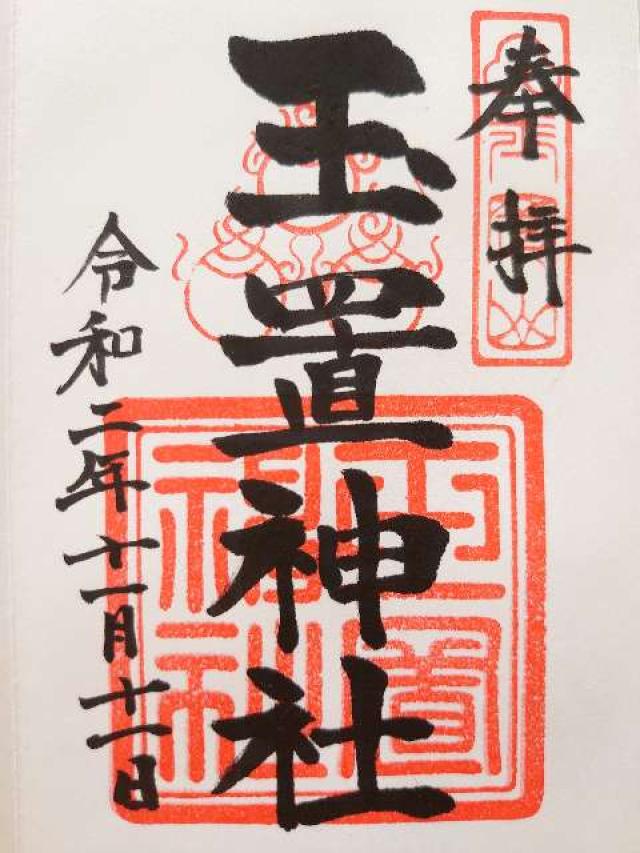 奉拝
玉置神社
令和二年十一月十一日
玉置神社